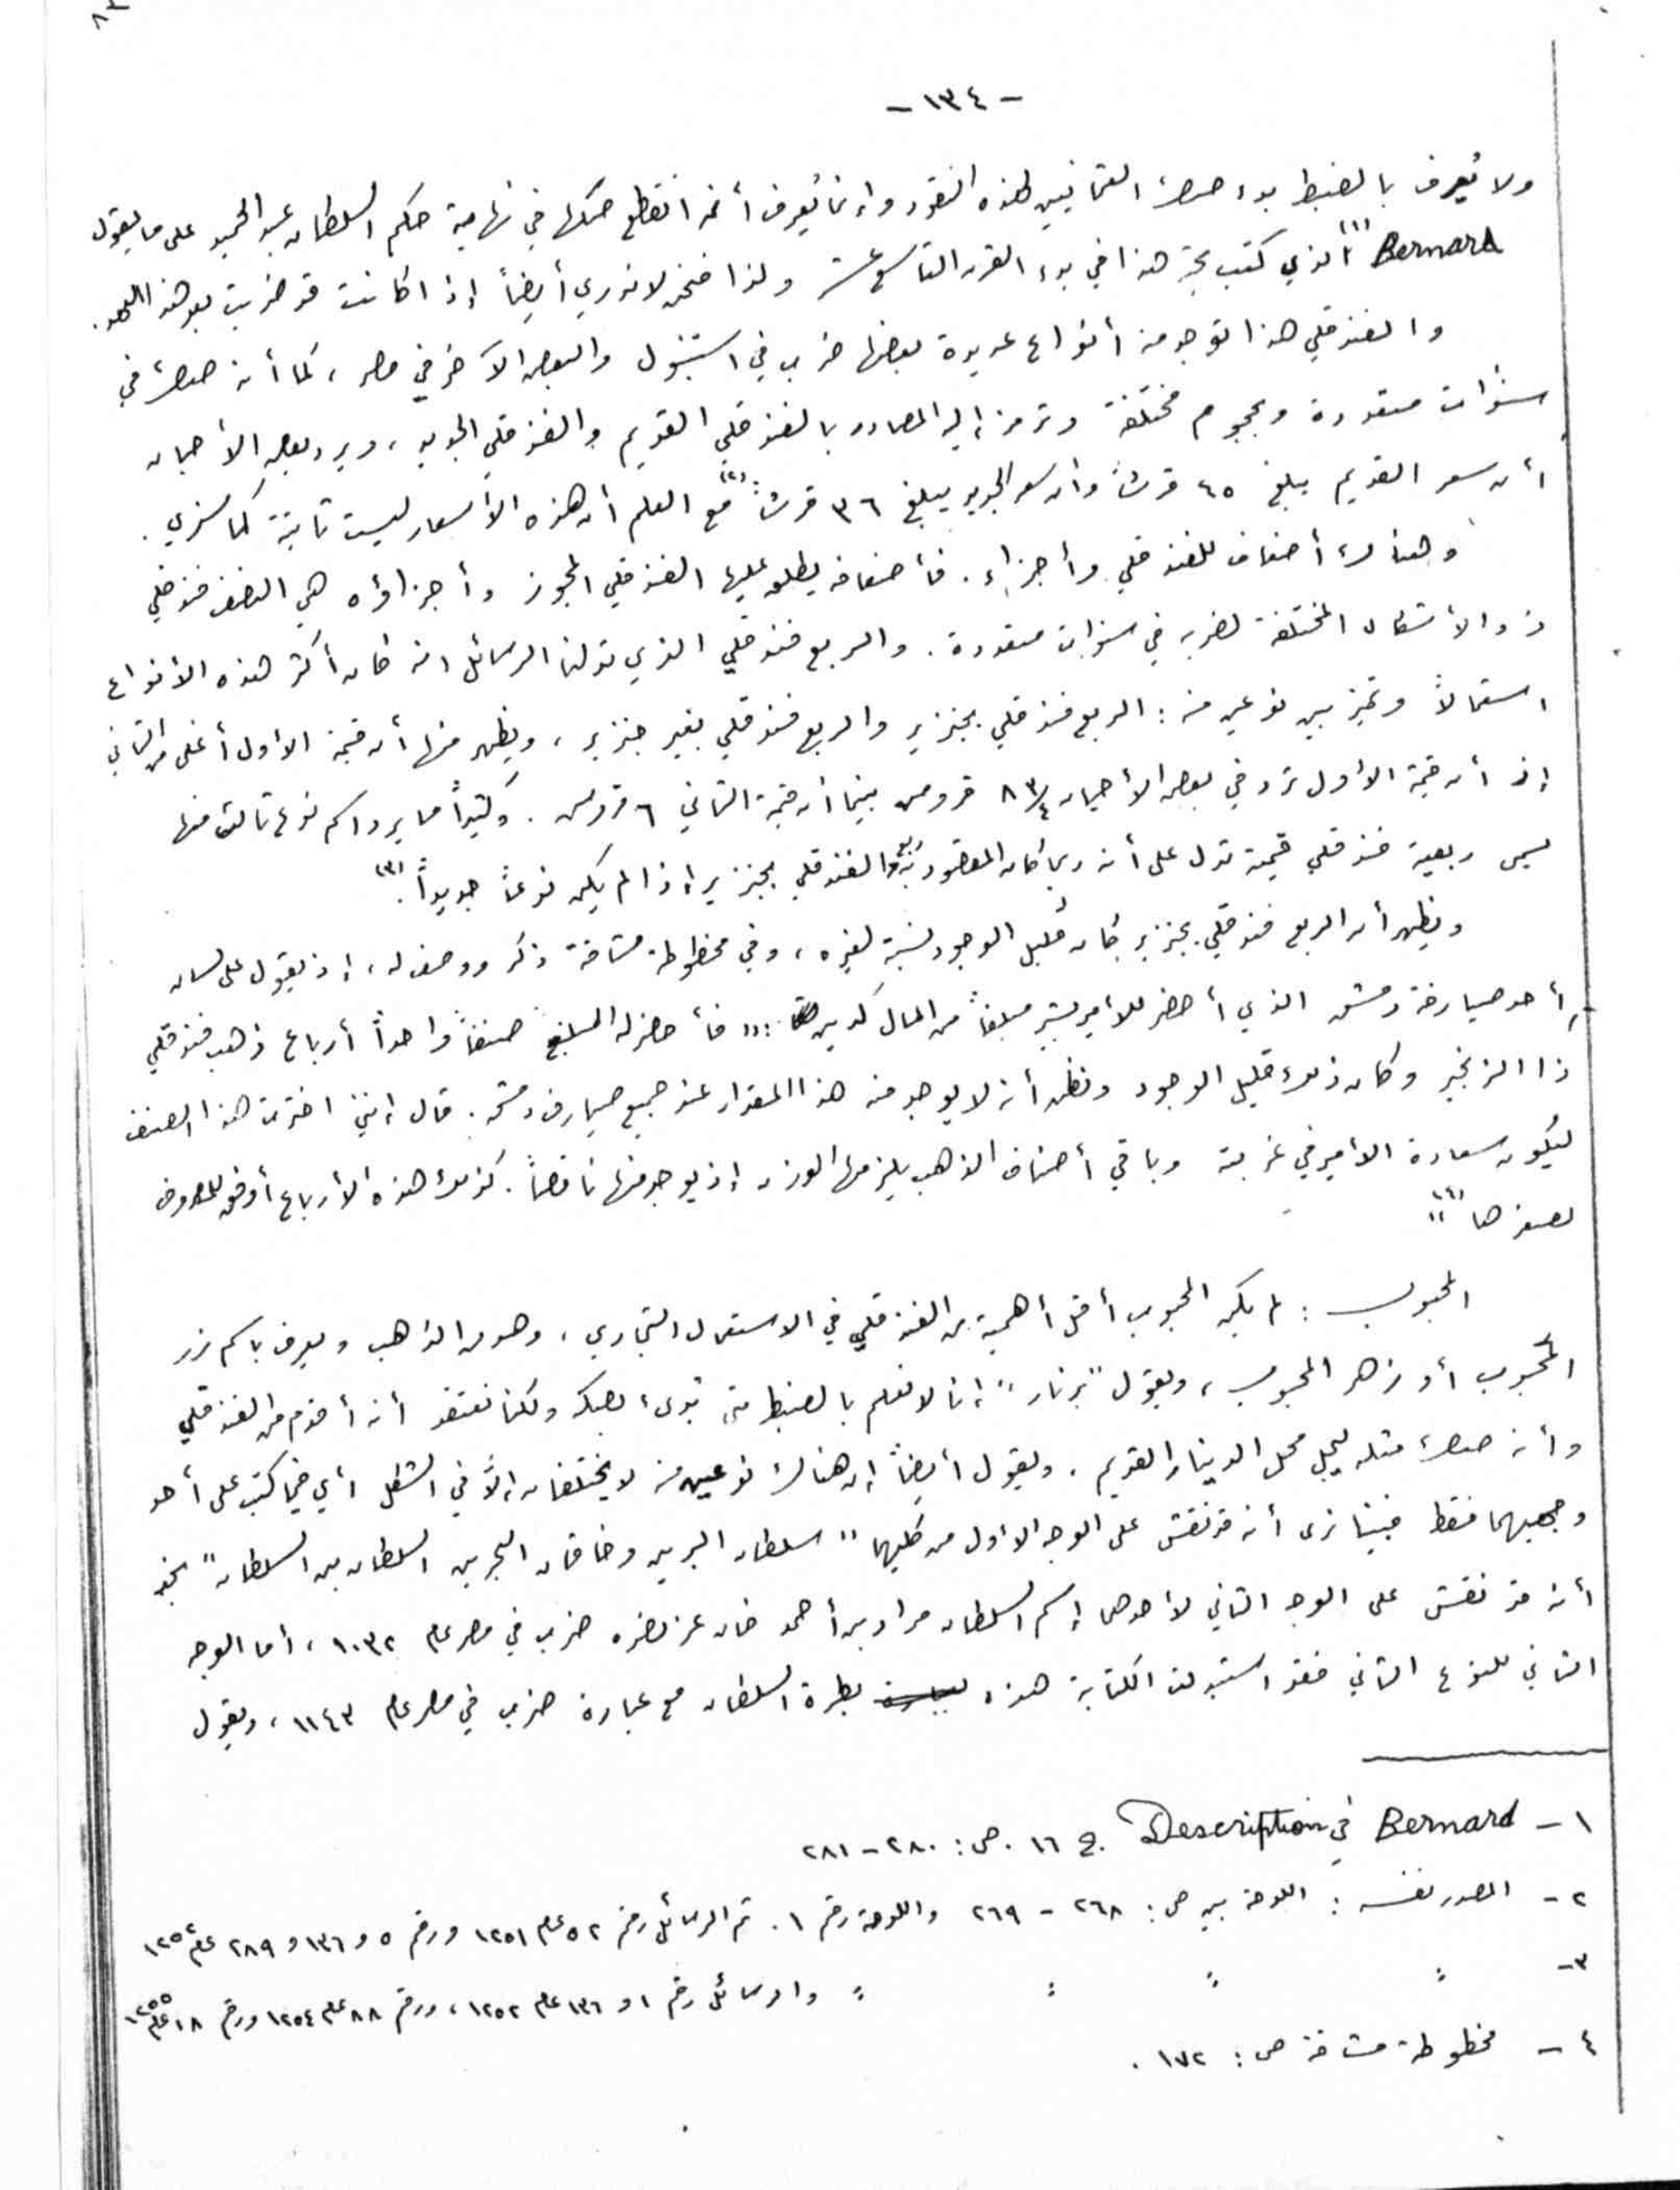 - ١٣٤ -
ولا يُعرف بالضبط بدء صك العثمانيين لهذه النقود وإنما يُعرف أنه انقطع صكها في نهاية حكم السلطان عبد الحميد على ما يقول
Bernard (١) الذي كتب بحثه هذا في بدء القرن التاسع عشر ولذا فنحن لا ندري أيضاً إذا كانت قد ضربت بعد هذا العهد.
والفندقلي هذا توجد منه أنواع عديدة بعضها ضرب في استنبول والبعض الآخر في مصر، كما أنه صك في
سنوات متعددة وبحجوم مختلفة وترمز إليه المصادر بالفندقلي القديم والفندقلي الجديد، ويرد بعض الأحيان
أن سعر القديم يبلغ ٤٥ قرشاً وأن سعر الجديد يبلغ ٣٦ قرشاً (٢) مع العلم أن هذه الأسعار ليست ثابتة كما سنرى.
وهناك أضعاف للفندقلي وأجزاء. فأضعافه يطلق عليها الفندقلي المجوز وأجزاؤه هي النصف فندقلي
ذو الأشكال المختلفة لضربه في سنوات متعددة. والربع فندقلي الذي تدلنا الرسائل انه كان أكثر هذه الأنواع
استعمالاً وتميز بين نوعين منه: الربع فندقلي بجنزير والربع فندقلي بغير جنزير، ويظهر منها أن قيمة الأول أغلى من الثاني
إذ أن قيمة الأول ترد في بعض الأحيان ٨ ٣/٤ قروش بينما أن قيمة الثاني ٦ قروش. وكثيراً ما يرد اسم نوع ثالث منها
يسمى ربعية فندقلي قيمته تدل على أنه ربما كان المقصود به ربع الفندقلي بجنزير إذا لم يكن نوعاً جديداً. (٣)
ويظهر أن الربع فندقلي بجنزير كان قليل الوجود نسبة لغيره، وفي مخطوطة مشاقة ذكر ووصف له، إذ يقول على لسان
أحد صيارفة دمشق الذي أحضر للأمير بشير مبلغاً من المال كدين: "فأحضر له المبلغ صنفاً واحداً أرباع ذهب فندقلي
ذا الزنجير وكان ذلك قليل الوجود ونظن أنه لا يوجد منه هذا المقدار عند جميع صيارف دمشق. قال إنني اخترت هذا الصنف
ليكون سعادة الأمير في غربته وباقي أصناف الذهب يلزمها الوزن إذ يوجد منها ناقصاً. كذلك هذه الأرباع أوفق للمصروف
لصغرها" (٤)
المحبوب: لم يكن المحبوب أقل أهمية من الفندقلي في الاستعمال التجاري، وهو من الذهب ويعرف باسم زر
المحبوب أو زهر المحبوب، ويقول "برنار" إنا لا نعلم بالضبط متى بُدىء بصكه ولكنا نعتقد أنه أقدم من الفندقلي
وأنه صك مثله ليحل محل الدينار القديم. ويقول أيضاً إن هناك نوعين منه لا يختلفان إلاَّ في الشكل أي فيما كتب على أحد
وجهيهما فقط فبينا نرى أنه قد نقش على الوجه الأول من كليهما "سلطان البرين وخاقان البحرين السلطان بن السلطان" نجد
أنه قد نقش على الوجه الثاني لأحدهما إسم السلطان مراد بن أحمد خان عز نصره ضرب في مصر عام ١٠٣٢، أما الوجه
الثاني للنوع الثاني فقد استبدلت الكتابة هذه بطرة السلطان مع عبارة ضرب في مصر عام ١١٤٣، ويقول
١ - Bernard في Description ج ١٦ . ص: ٢٨٠ - ٢٨١
٢ - المصدر نفسه : اللوحة بين ص: ٢٦٨ - ٢٦٩ واللوحة رقم ١ . ثم الرسائل رقم ٥٢ عام ١٢٥١ ورقم ٥ و ١٣٦ و ٢٨٩ عام ١٢٥٢
٣ - " " " " والرسائل رقم ١ و ١٣٦ عام ١٢٥٢، ورقم ٨٨ عام ١٢٥٤ ورقم ١٨ عام ١٢٥٥
٤ - مخطوطة مشاقة ص: ١٧٢ .